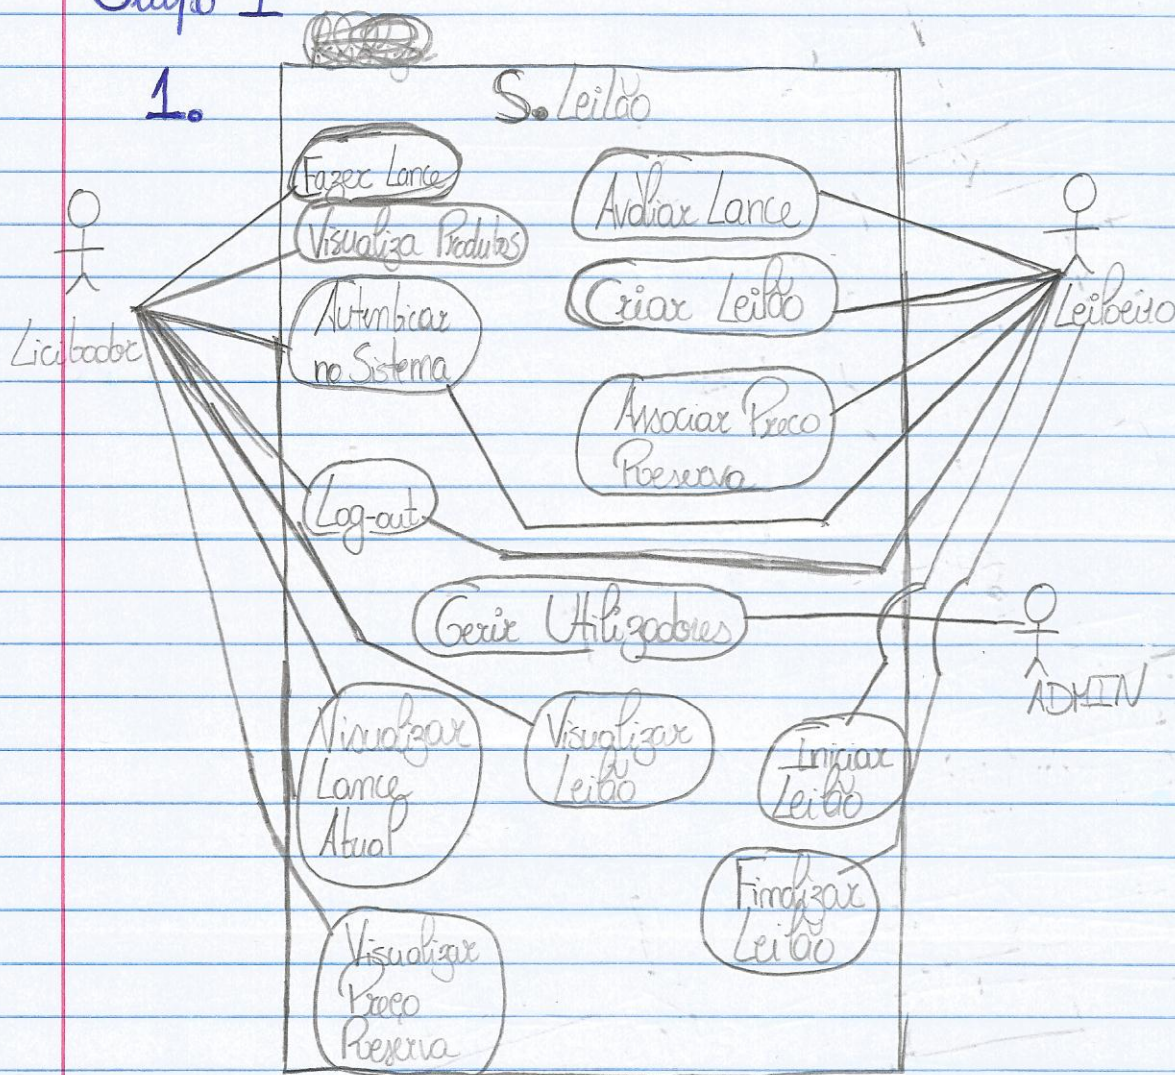 Grupo I
1.
S. Leilão
Fazer Lance
Visualiza Produtos
Autenticar
no Sistema
Log-out
Avaliar Lance
Criar Leilão
Associar Preço
Reserva
Licitador
Leiloeiro
Gerir Utilizadores
ADMIN
Visualizar
Lance
Atual
Visualizar
Leilão
Iniciar
Leilão
Finalizar
Leilão
Visualizar
Preço
Reserva